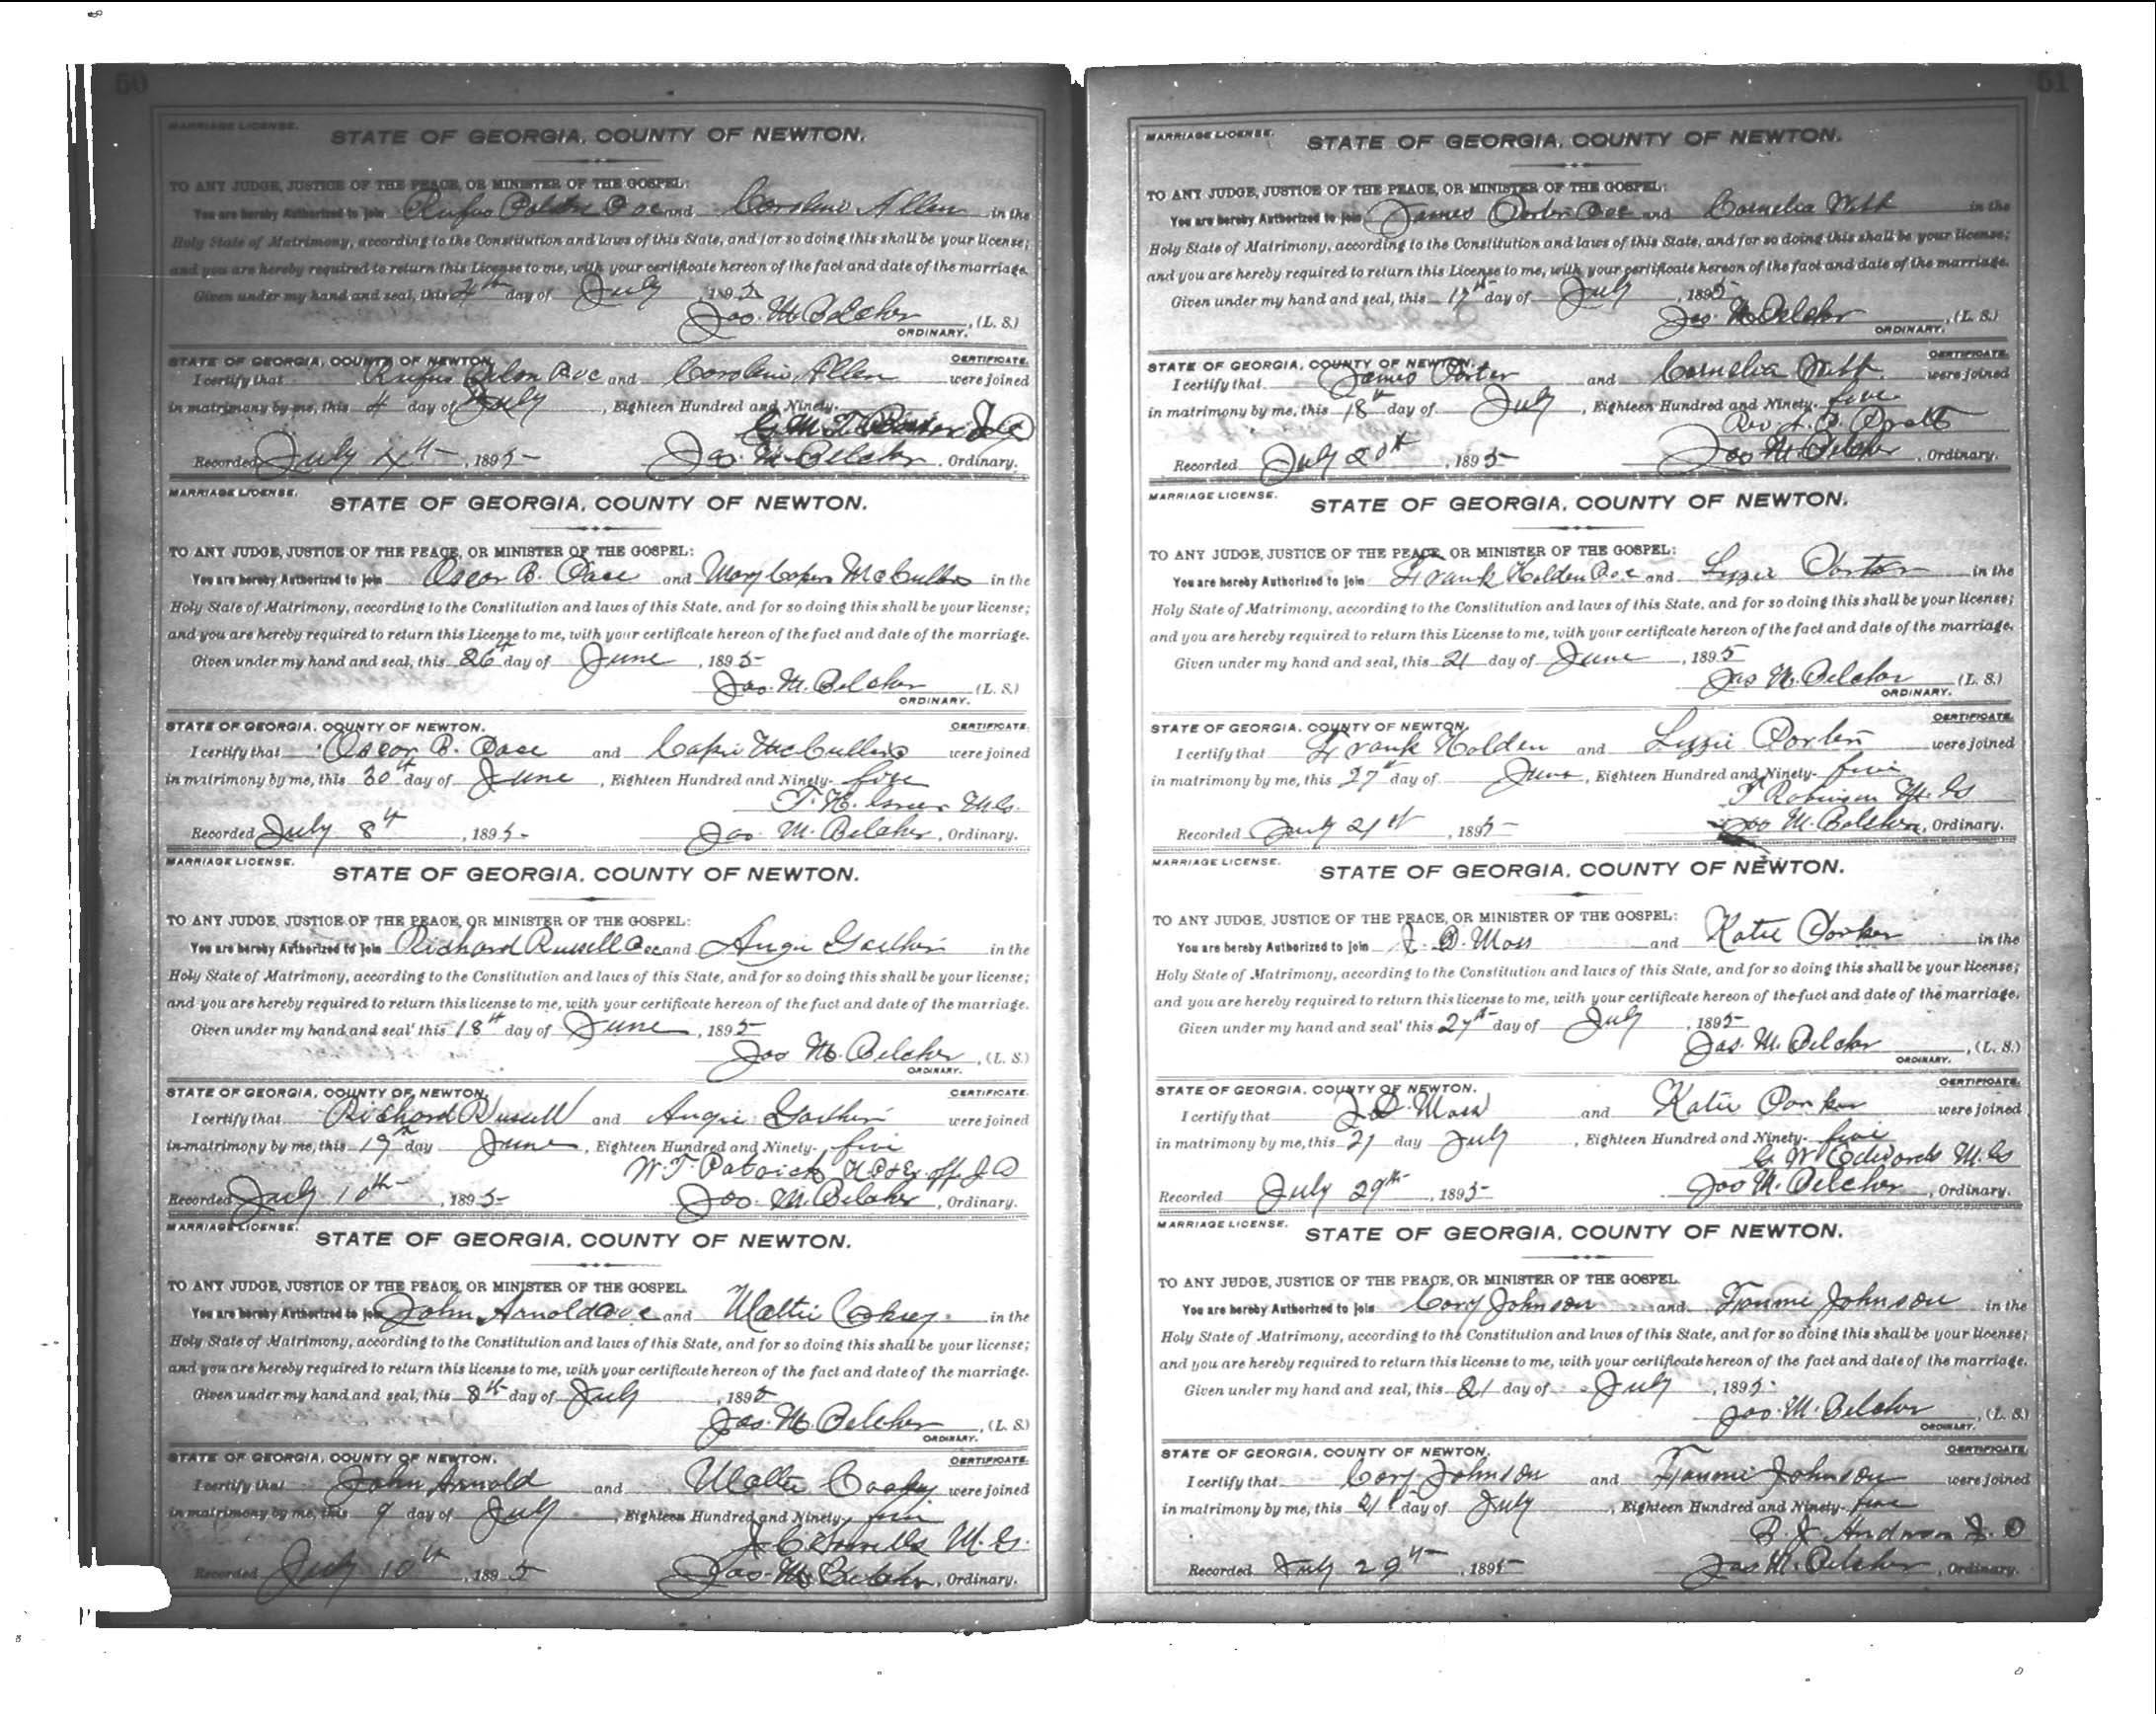 50
MARRIAGE LICENSE.
STATE OF GEORGIA, COUNTY OF NEWTON.
TO ANY JUDGE, JUSTICE OF THE PEACE, OR MINISTER OF THE GOSPEL:
You are hereby Authorized to join Rufus and Caroline Allen in the
Holy State of Matrimony, according to the Constitution and laws of this State, and for so doing this shall be your license;
and you are hereby required to return this License to me, with your certificate hereon of the fact and date of the marriage.
Given under my hand and seal, this 4th day of July 1895
Jas. M. Belcher, (L. S.)
ORDINARY.
STATE OF GEORGIA, COUNTY OF NEWTON. CERTIFICATE.
I certify that Rufus and Caroline Allen were joined
in matrimony by me, this 4 day of July, Eighteen Hundred and Ninety-
Recorded July 4th, 1895 Jas. M. Belcher, Ordinary.
MARRIAGE LICENSE.
STATE OF GEORGIA, COUNTY OF NEWTON.
TO ANY JUDGE, JUSTICE OF THE PEACE, OR MINISTER OF THE GOSPEL:
You are hereby Authorized to join Oscar B. and Mary in the
Holy State of Matrimony, according to the Constitution and laws of this State, and for so doing this shall be your license;
and you are hereby required to return this License to me, with your certificate hereon of the fact and date of the marriage.
Given under my hand and seal, this 26th day of June, 1895
Jas. M. Belcher (L. S.)
ORDINARY.
STATE OF GEORGIA, COUNTY OF NEWTON. CERTIFICATE.
I certify that Oscar B. and were joined
in matrimony by me, this 30th day of June, Eighteen Hundred and Ninety-five
M.G.
Recorded July 8th, 1895- Jas. M. Belcher, Ordinary.
MARRIAGE LICENSE.
STATE OF GEORGIA, COUNTY OF NEWTON.
TO ANY JUDGE, JUSTICE OF THE PEACE, OR MINISTER OF THE GOSPEL:
You are hereby Authorized to join Richard Russell and Angie in the
Holy State of Matrimony, according to the Constitution and laws of this State, and for so doing this shall be your license;
and you are hereby required to return this license to me, with your certificate hereon of the fact and date of the marriage.
Given under my hand and seal this 18th day of June, 1895
Jas M. Belcher, (L. S.)
ORDINARY.
STATE OF GEORGIA, COUNTY OF NEWTON. CERTIFICATE.
I certify that Richard Russell and Angie were joined
in matrimony by me, this 19th day June, Eighteen Hundred and Ninety-five
W. T. Patrick N.P. & Ex. off. J.P.
Recorded July 10th, 1895 Jas. M. Belcher, Ordinary.
MARRIAGE LICENSE.
STATE OF GEORGIA, COUNTY OF NEWTON.
TO ANY JUDGE, JUSTICE OF THE PEACE, OR MINISTER OF THE GOSPEL.
You are hereby Authorized to join John Arnold and in the
Holy State of Matrimony, according to the Constitution and laws of this State, and for so doing this shall be your license;
and you are hereby required to return this license to me, with your certificate hereon of the fact and date of the marriage.
Given under my hand and seal, this 8th day of July, 1895
Jas. M. Belcher, (L. S.)
ORDINARY.
STATE OF GEORGIA, COUNTY OF NEWTON. CERTIFICATE.
I certify that John Arnold and were joined
in matrimony by me, this 9 day of July, Eighteen Hundred and Ninety-five
M. G.
Recorded July 10th, 1895 Jas. M. Belcher, Ordinary.
51
MARRIAGE LICENSE.
STATE OF GEORGIA, COUNTY OF NEWTON.
TO ANY JUDGE, JUSTICE OF THE PEACE, OR MINISTER OF THE GOSPEL:
You are hereby Authorized to join James Porter and Cornelia in the
Holy State of Matrimony, according to the Constitution and laws of this State, and for so doing this shall be your license;
and you are hereby required to return this License to me, with your certificate hereon of the fact and date of the marriage.
Given under my hand and seal, this 17th day of July, 1895
Jas M. Belcher, (L. S.)
ORDINARY.
STATE OF GEORGIA, COUNTY OF NEWTON. CERTIFICATE.
I certify that James Porter and Cornelia were joined
in matrimony by me, this 18th day of July, Eighteen Hundred and Ninety-five
Rev.
Recorded July 20th, 1895 Jas M. Belcher, Ordinary.
MARRIAGE LICENSE.
STATE OF GEORGIA, COUNTY OF NEWTON.
TO ANY JUDGE, JUSTICE OF THE PEACE, OR MINISTER OF THE GOSPEL:
You are hereby Authorized to join Frank Holden and Lizzie Porter in the
Holy State of Matrimony, according to the Constitution and laws of this State, and for so doing this shall be your license;
and you are hereby required to return this License to me, with your certificate hereon of the fact and date of the marriage.
Given under my hand and seal, this 21 day of June, 1895
Jas M. Belcher (L. S.)
ORDINARY.
STATE OF GEORGIA, COUNTY OF NEWTON. CERTIFICATE.
I certify that Frank Holden and Lizzie Porter were joined
in matrimony by me, this 27th day of June, Eighteen Hundred and Ninety-five
Robinson M. G.
Recorded July 21st, 1895 Jas M. Belcher, Ordinary.
MARRIAGE LICENSE.
STATE OF GEORGIA, COUNTY OF NEWTON.
TO ANY JUDGE, JUSTICE OF THE PEACE, OR MINISTER OF THE GOSPEL:
You are hereby Authorized to join J. D. Moss and Katie Parker in the
Holy State of Matrimony, according to the Constitution and laws of this State, and for so doing this shall be your license;
and you are hereby required to return this license to me, with your certificate hereon of the fact and date of the marriage.
Given under my hand and seal this 27th day of July, 1895
Jas. M. Belcher, (L. S.)
ORDINARY.
STATE OF GEORGIA, COUNTY OF NEWTON. CERTIFICATE.
I certify that J. D. Moss and Katie Parker were joined
in matrimony by me, this day July, Eighteen Hundred and Ninety-five
W Edwards M. G
Recorded July 29th, 1895 Jas M. Belcher, Ordinary.
MARRIAGE LICENSE.
STATE OF GEORGIA, COUNTY OF NEWTON.
TO ANY JUDGE, JUSTICE OF THE PEACE, OR MINISTER OF THE GOSPEL.
You are hereby Authorized to join Cory Johnson and Fannie Johnson in the
Holy State of Matrimony, according to the Constitution and laws of this State, and for so doing this shall be your license;
and you are hereby required to return this license to me, with your certificate hereon of the fact and date of the marriage.
Given under my hand and seal, this 21 day of July, 1895
Jas. M. Belcher, (L. S.)
ORDINARY.
STATE OF GEORGIA, COUNTY OF NEWTON. CERTIFICATE.
I certify that Cory Johnson and Fannie Johnson were joined
in matrimony by me, this 21st day of July, Eighteen Hundred and Ninety-five
J. P.
Recorded July 29th, 1895 Jas M. Belcher, Ordinary.